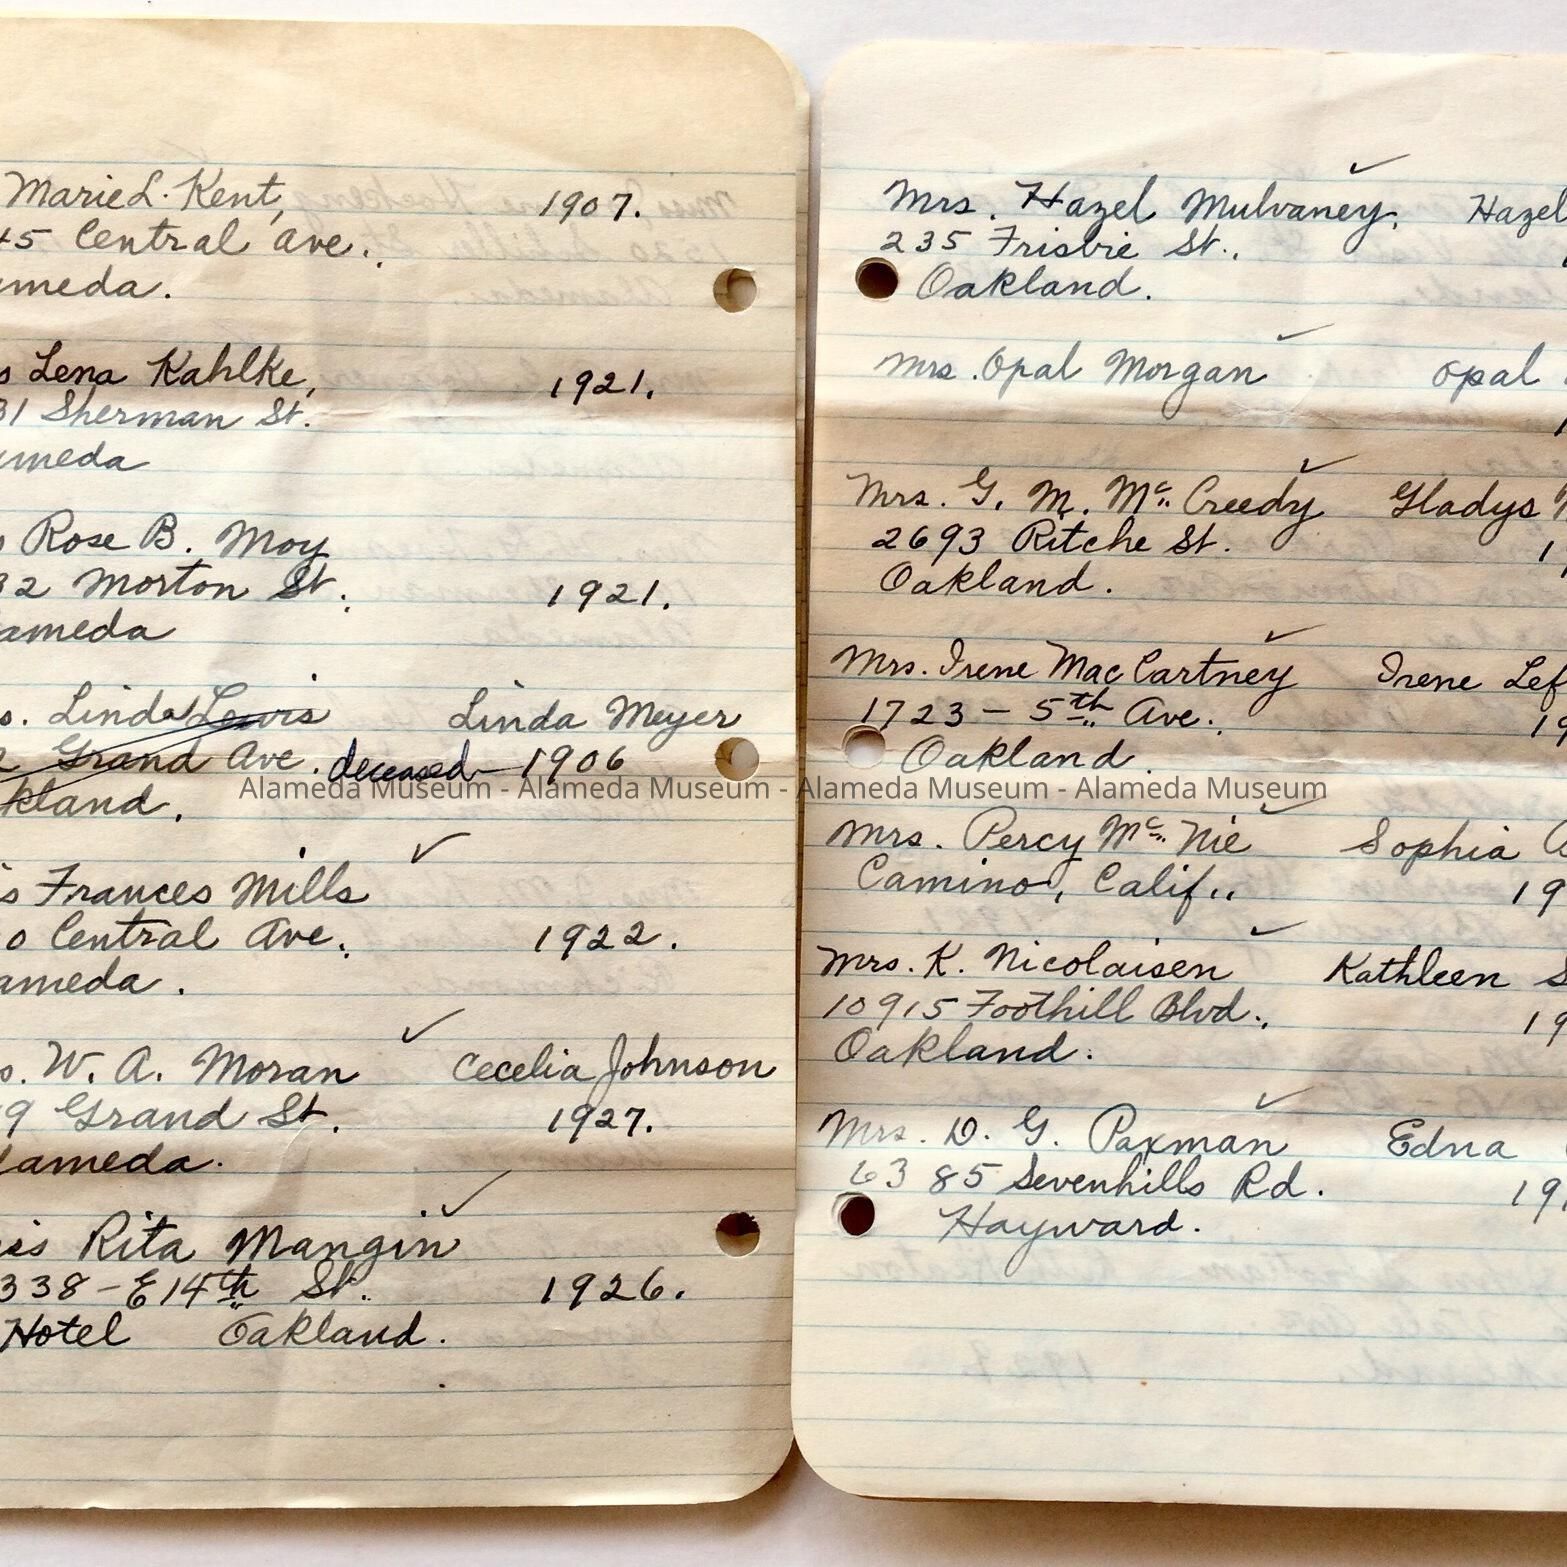 Marie L. Kent, 1907.
45 Central Ave.
ameda.
s Lena Kahlke, 1921.
31 Sherman St.
ameda
s Rose B. Moy
32 Morton St. 1921.
ameda
s. Linda Lewis Linda Meyer
2 Grand Ave. deceased - 1906
kland.
s Frances Mills
0 Central Ave. 1922.
ameda.
s. W. A. Moran Cecelia Johnson
9 Grand St. 1927.
lameda.
iss Rita Mangin
338 - E 14th St. 1926.
Hotel Oakland.
Mrs. Hazel Mulvaney. Hazel
235 Frisbie St.,
Oakland.
Mrs. Opal Morgan Opal
Mrs. G. M. McCreedy Gladys
2693 Ritche St.
Oakland.
Mrs. Irene MacCartney Irene Lef
1723 - 5th Ave. 19
Oakland.
Mrs. Percy McNie Sophia
Camino, Calif., 19
Mrs. K. Nicolaisen Kathleen S
10915 Foothill Blvd., 19
Oakland.
Mrs. D. G. Paxman Edna
6385 Sevenhills Rd. 19
Hayward.
Alameda Museum - Alameda Museum - Alameda Museum - Alameda Museum